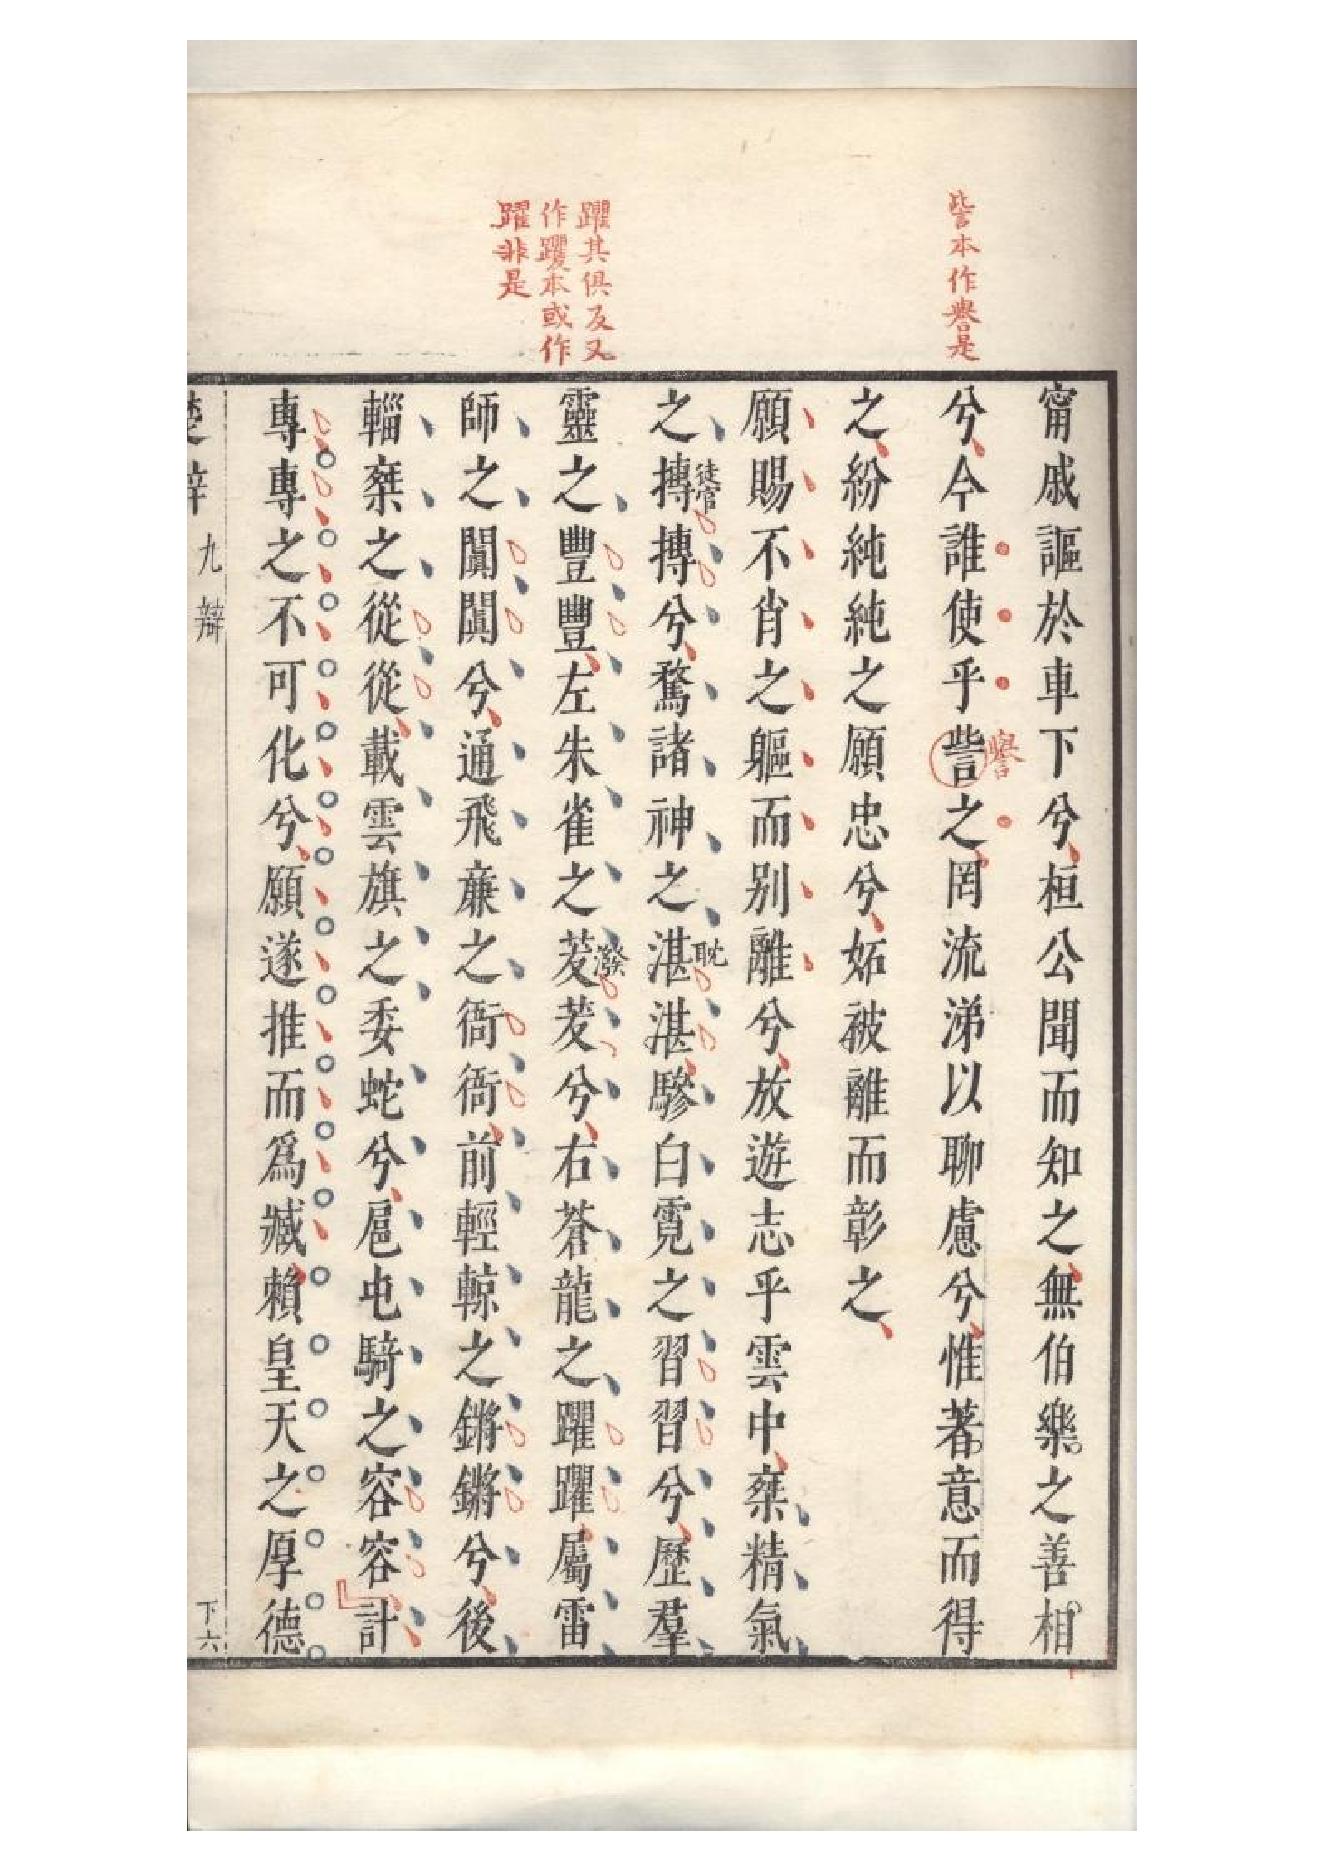 訾本作譽是
躍其俱反又
作躩本或作
躍非是
甯戚謳於車下兮桓公聞而知之無伯樂之善相
兮今誰使乎訾之罔流涕以聊慮兮惟著意而得
譽
之紛純純之願忠兮妬被離而彰之
願賜不肖之軀而别離兮放遊志乎雲中椉精氣
之摶摶兮騖諸神之湛湛驂白霓之習習兮歷羣
徒官
耽
靈之豐豐左朱雀之茇茇兮右蒼龍之躍躍屬雷
潑
師之闐闐兮通飛亷之衙衙前輕輬之鏘鏘兮後
輜椉之從從載雲旗之委蛇兮扈屯騎之容容計
專專之不可化兮願遂推而爲臧賴皇天之厚德
楚辭
九辯
下六